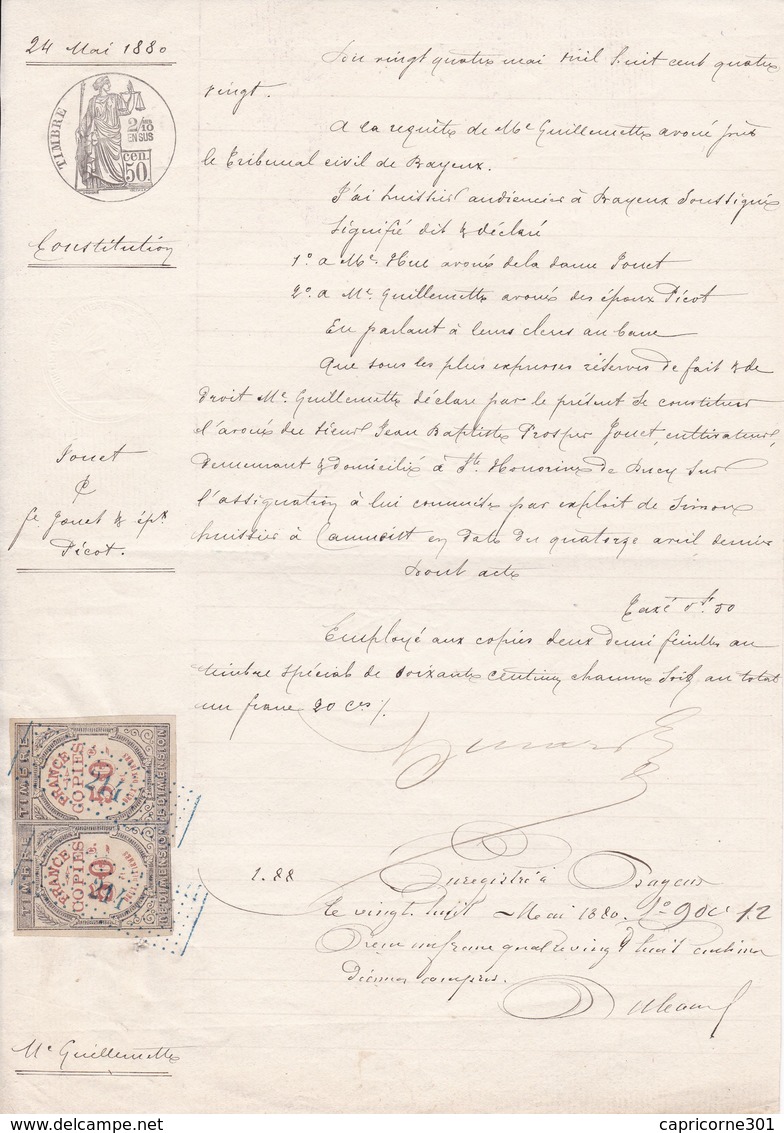 24 Mai 1880
TIMBRE
2/10
EN SUS
50 cen.
Constitution
Jouet
C
fe Jouet & épx
Picot.
Me Guillemette
L'an vingt quatre mai mil huit cent quatre
vingt.
A la requête de Me Guillemette avoué près
le Tribunal civil de Bayeux.
J'ai huissier audiencier à Bayeux soussigné
signifié dit & déclaré
1o a Me Hue avoué de la dame Jouet
2o a Me Guillemette avoué des époux Picot
En parlant à leurs clercs au banc
Que sous les plus expresses réserves de fait & de
droit Me Guillemette déclare par le présent se constituer
l'avoué du sieur Jean Baptiste Prosper Jouet, cultivateur
demeurant & domicilié à Ste Honorine de Ducy sur
l'assignation à lui commise par exploit de Simon
huissier à Caumont en date du quatorze avril dernier
Dont acte
Taxé 0f. 50
Employé aux copies deux demi feuilles au
timbre spécial de soixante centimes chacune soit au total
un franc 20 ces /.
TIMBRE DIMENSION
FRANCE
COPIES
60
21
TIMBRE DIMENSION
FRANCE
COPIES
60
21
1.88
Enregistré à Bayeux
le vingt huit Mai 1880. fo 90 c 12
Reçu un franc quatre vingt huit centimes
décimes compris.
delcampe.net
capricorne301